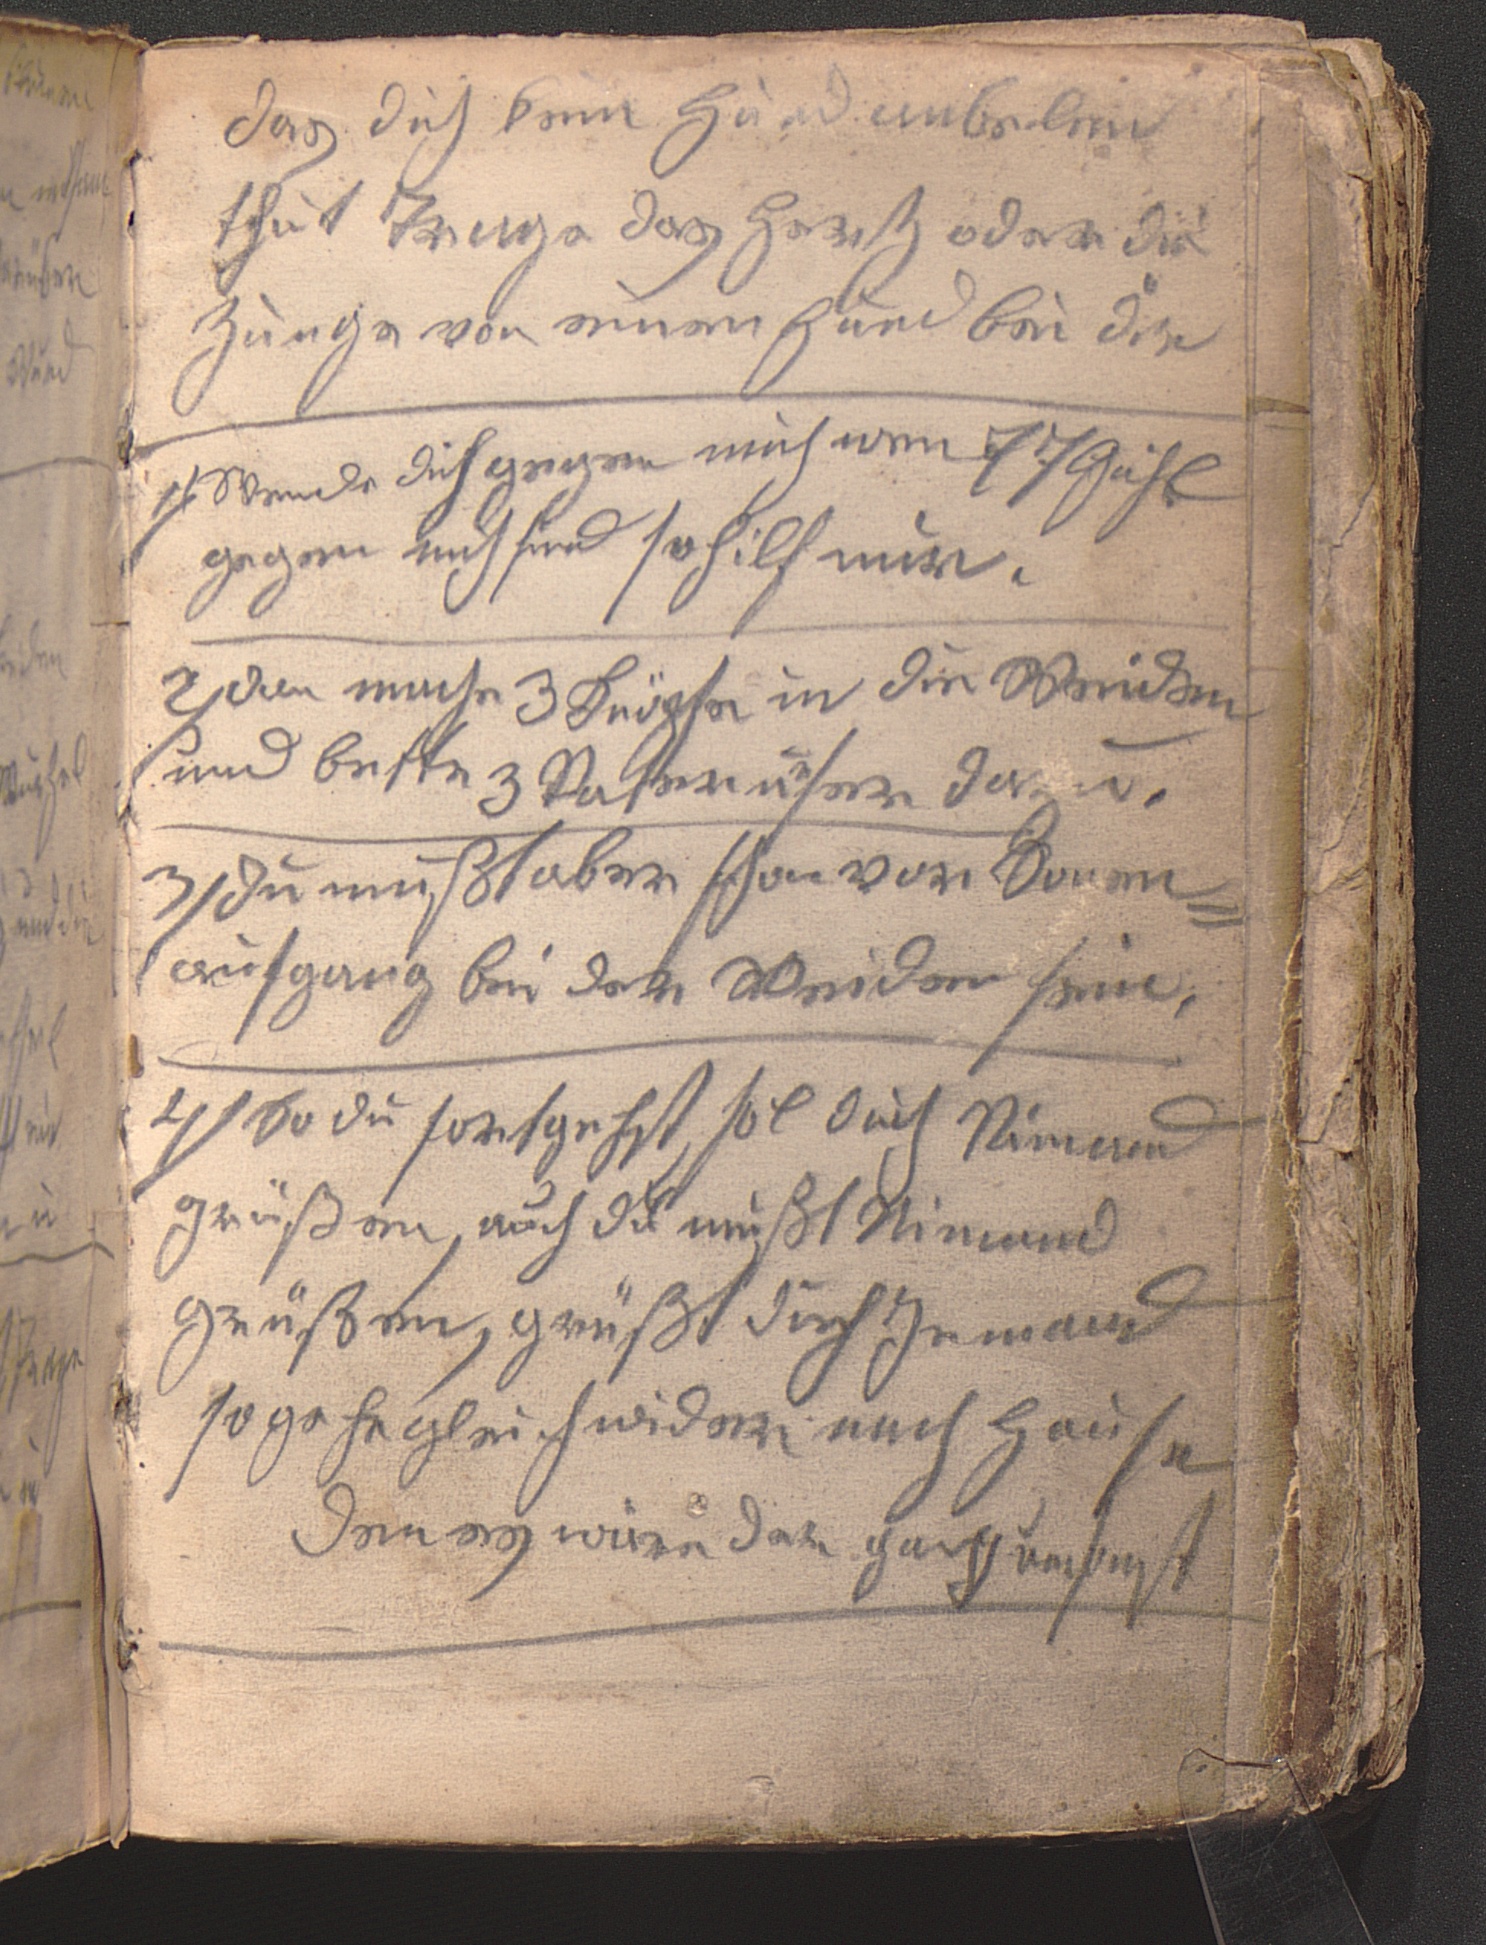 das dich kein Hund anbelen
thut Trage das Hertz oder die
Zunge von einen Hund bei dir
1) Wende dich gegen mich wen 77 Gicht
gegen mich sind so hilf mir.
2) den mache 3 Knöpfe in die Weiden
und bette 3 Vaterunser dazu.
3) Du mußt aber schon vor Sonen=
aufgang bei der Weiden sein,
4) So du fortgehst, sol dich Nimand
grüßen, auch du mußt Nimand
grüßen, grüßt dich Jemand
so gehe gleich wider nach Hause
den es wäre dan gantz umsonst